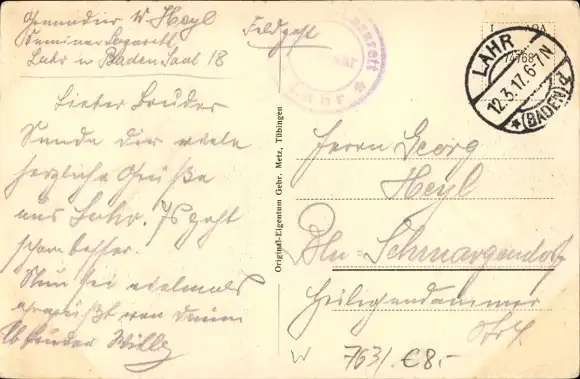 Grenadier W Heyl
Seminar Lazarett
Lahr in Baden Saal 18
Feldpost
Lazarett
Lahr
LAHR
12.3.17. 6-7N
* (BADEN) 2
74768
Lieber Bruder
Sende dir viele
herzliche Grüße
aus Lahr. Is geht
schon besser.
Nun sei vielmals
gegrüßt von deinem
lb Bruder Willy
Original-Eigentum Gebr. Metz, Tübingen
Herrn Georg
Heyl
Bln-Schmargendorf
Heiligendammer
Str 4
W 763/. €8.-